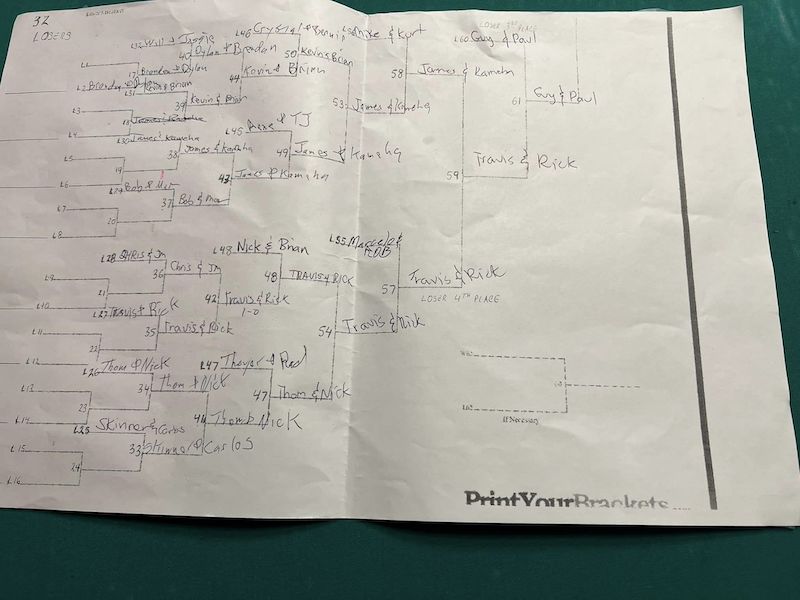 32
LOSERS
L46
L60 Guy & Paul
LOSER 3RD PLACE
Mike & Kurt
40 Dylan & Brendon
50 Kevin & Brian
58
James & Kameha
L1
17 Brendon & Dylan
44 Kevin & Brian
61 Guy & Paul
L2
L31 Kevin & Brian
39 Kevin & Brian
53 James & Kameha
L3
18 James & Kameha
L45
& TJ
L4
L30 James & Kameha
38 James & Kameha
49 James & Kameha
Travis & Rick
L5
19
43 James & Kameha
59
L6
L29 Bob &
37 Bob &
L7
20
L8
L55
57 Travis & Rick
LOSER 4TH PLACE
L48 Nick & Brian
L28 CHRIS & Jm
36 Chris & Jm
48 TRAVIS & RICK
L9
21
42 Travis & Rick
1-0
L10
L27 Travis & Rick
35 Travis & Rick
54 Travis & Rick
L11
22
L12
L26 Thom & Nick
34 Thom & Nick
L47
47 Thom & Nick
L13
23
41 Thom & Nick
L14
L25 Skinner & Carlos
33 Skinner & Carlos
L15
24
L16
If Necessary
PrintYourBrackets